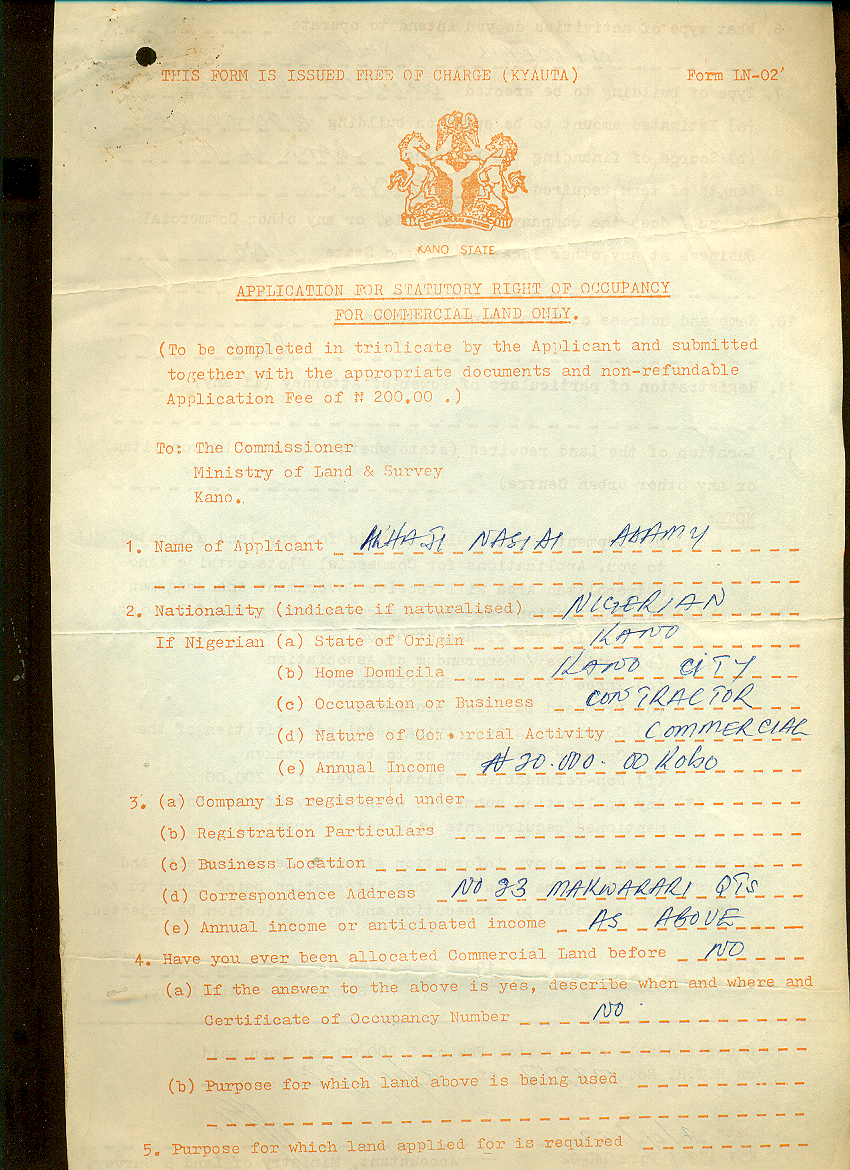 THIS FORM IS ISSUED FREE OF CHARGE (KYAUTA) Form LN-02'
KANO STATE
APPLICATION FOR STATUTORY RIGHT OF OCCUPANCY
FOR COMMERCIAL LAND ONLY.
(To be completed in triplicate by the Applicant and submitted
together with the appropriate documents and non-refundable
Application Fee of ₦ 200.00 .)
To: The Commissioner
Ministry of Land & Survey
Kano.
1. Name of Applicant ALHAJI NASIRI ADAMU
2. Nationality (indicate if naturalised) NIGERIAN
If Nigerian (a) State of Origin KANO
(b) Home Domicila KANO CITY
(c) Occupation or Business CONTRACTOR
(d) Nature of Commercial Activity COMMERCIAL
(e) Annual Income ₦ 20.000. 00 Kobo
3. (a) Company is registered under
(b) Registration Particulars
(c) Business Location
(d) Correspondence Address NO 23 MAKWARARI QTS
(e) Annual income or anticipated income AS ABOVE
4. Have you ever been allocated Commercial Land before NO
(a) If the answer to the above is yes, describe when and where and
Certificate of Occupancy Number NO
(b) Purpose for which land above is being used
5. Purpose for which land applied for is required